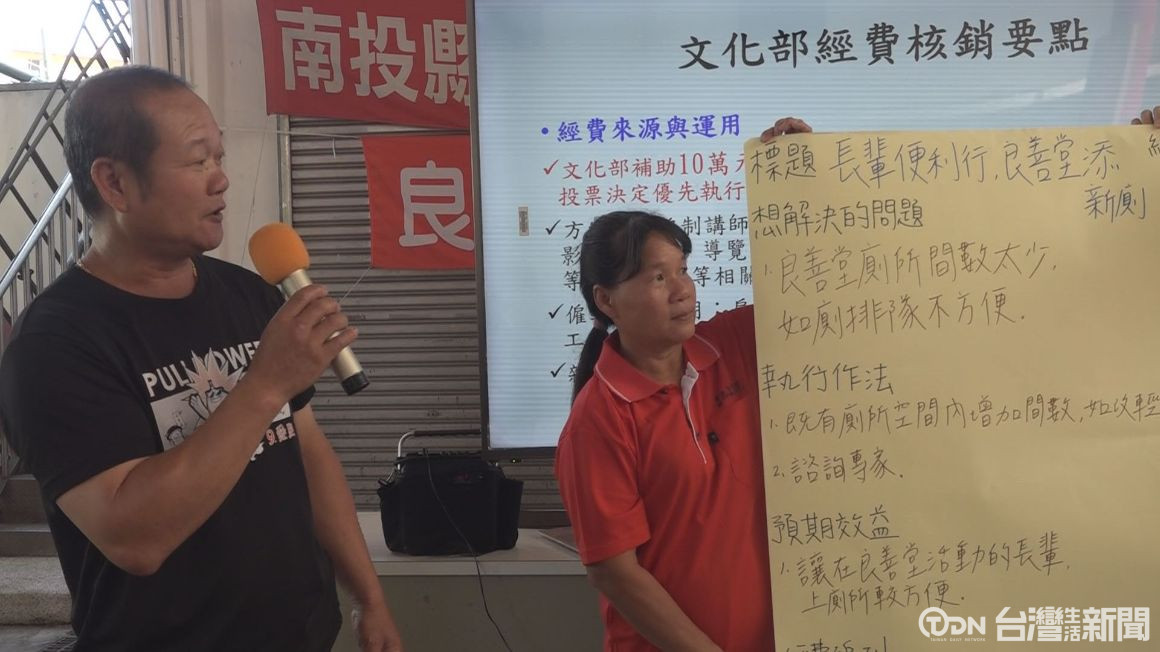 南投縣
良
文化部經費核銷要點
• 經費來源與運用
✓文化部補助10萬元
投票決定優先執行
✓方
制講師
影
導覽
等
等相關
✓僱
用:
工
✓
PULL
標題 長輩便利行,良善堂添
新廁
想解決的問題
1.良善堂廁所間數太少,
如廁排隊不方便.
執行作法
1.既有廁所空間內增加間數,如改輕
2.諮詢專家.
預期效益
1.讓在良善堂活動的長輩,
上廁所較方便.
TDN 台灣生活新聞
TAIWAN DAILY NETWORK